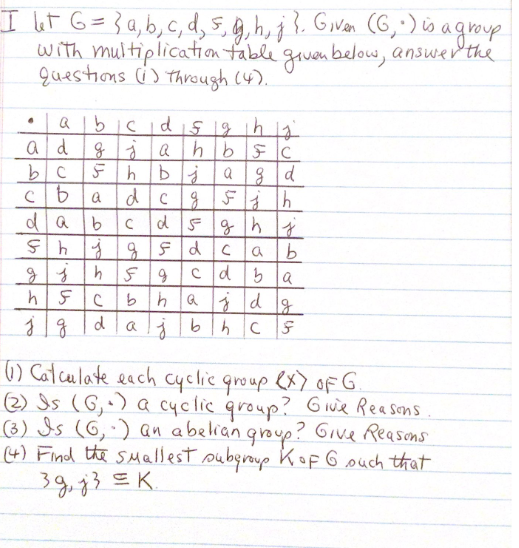 I let G = {a, b, c, d, f, g, h, j}. Given (G, ·) is a group
with multiplication table given below, answer the
questions (1) through (4).
· a b c d f g h j
a d g j a h b f c
b c f h b j a g d
c b a d c g f j h
d a b c d f g h j
f h j g f d c a b
g j h f g c d b a
h f c b h a j d g
j g d a j b h c f
(1) Calculate each cyclic group <x> of G.
(2) Is (G, ·) a cyclic group? Give Reasons.
(3) Is (G, ·) an abelian group? Give Reasons
(4) Find the smallest subgroup K of G such that
{g, j} ⊆ K.